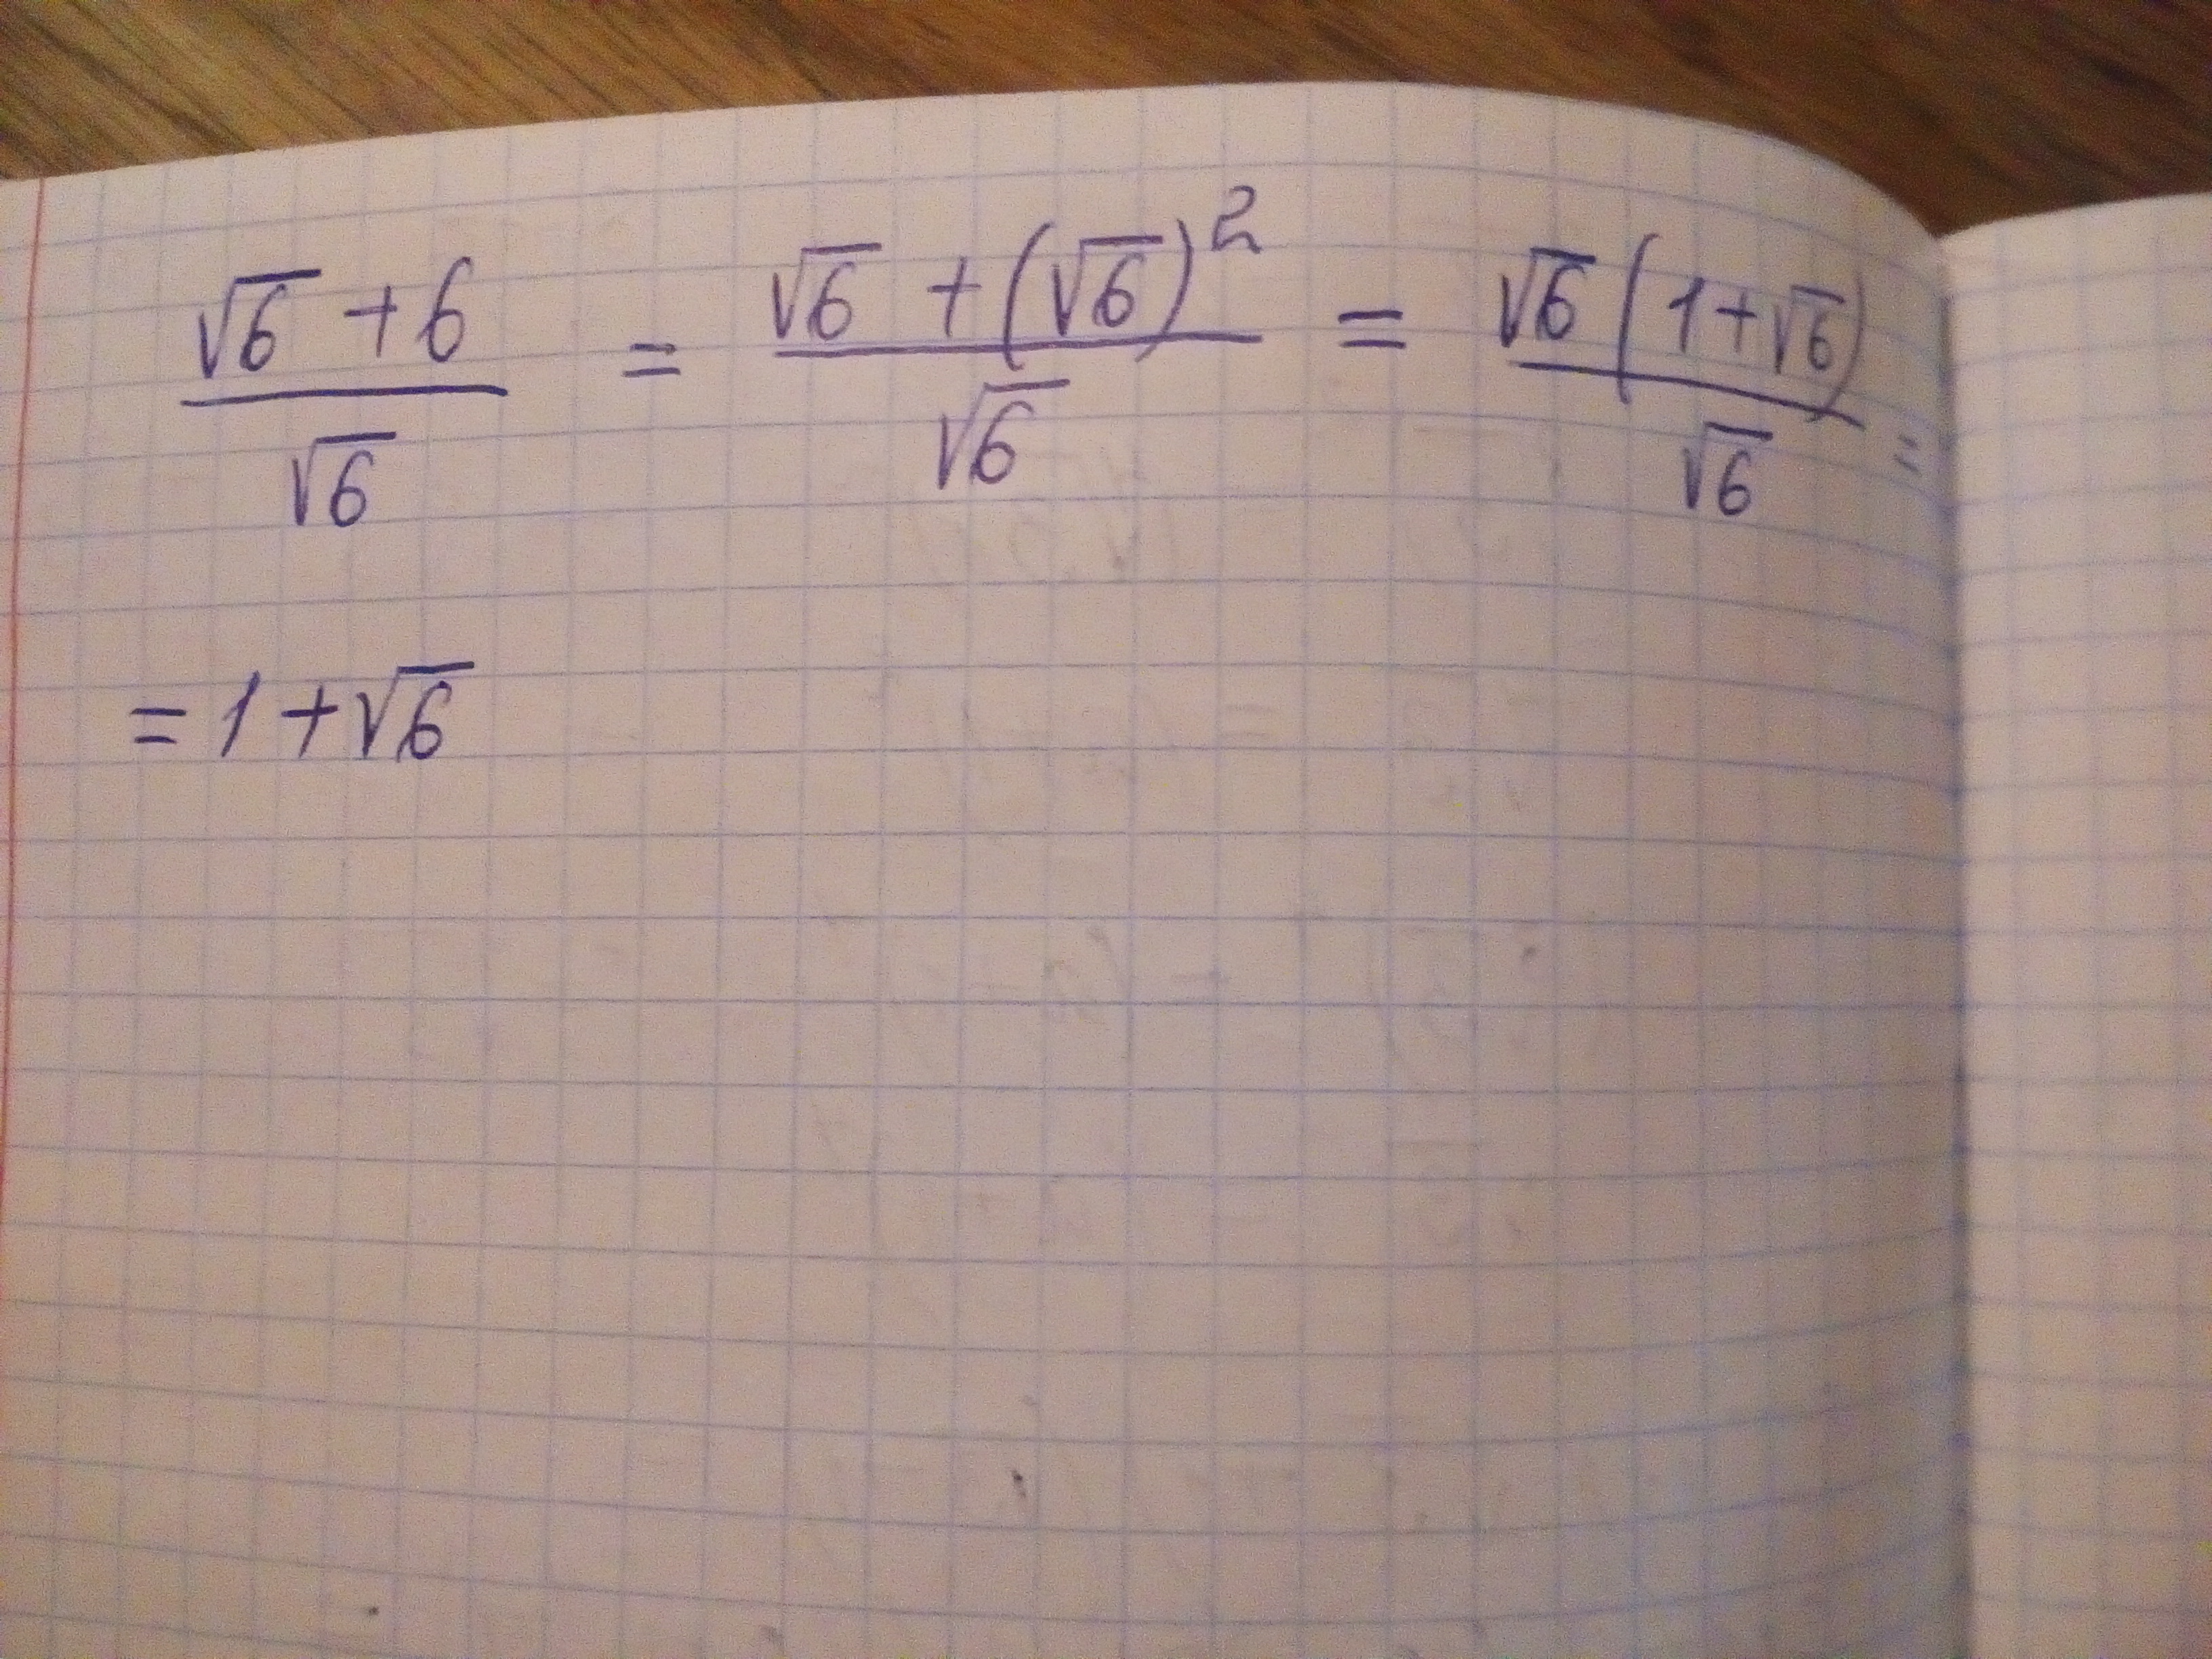 (√6 + 6)/√6 = (√6 + (√6)²)/√6 = √6(1+√6)/√6 =
= 1 + √6